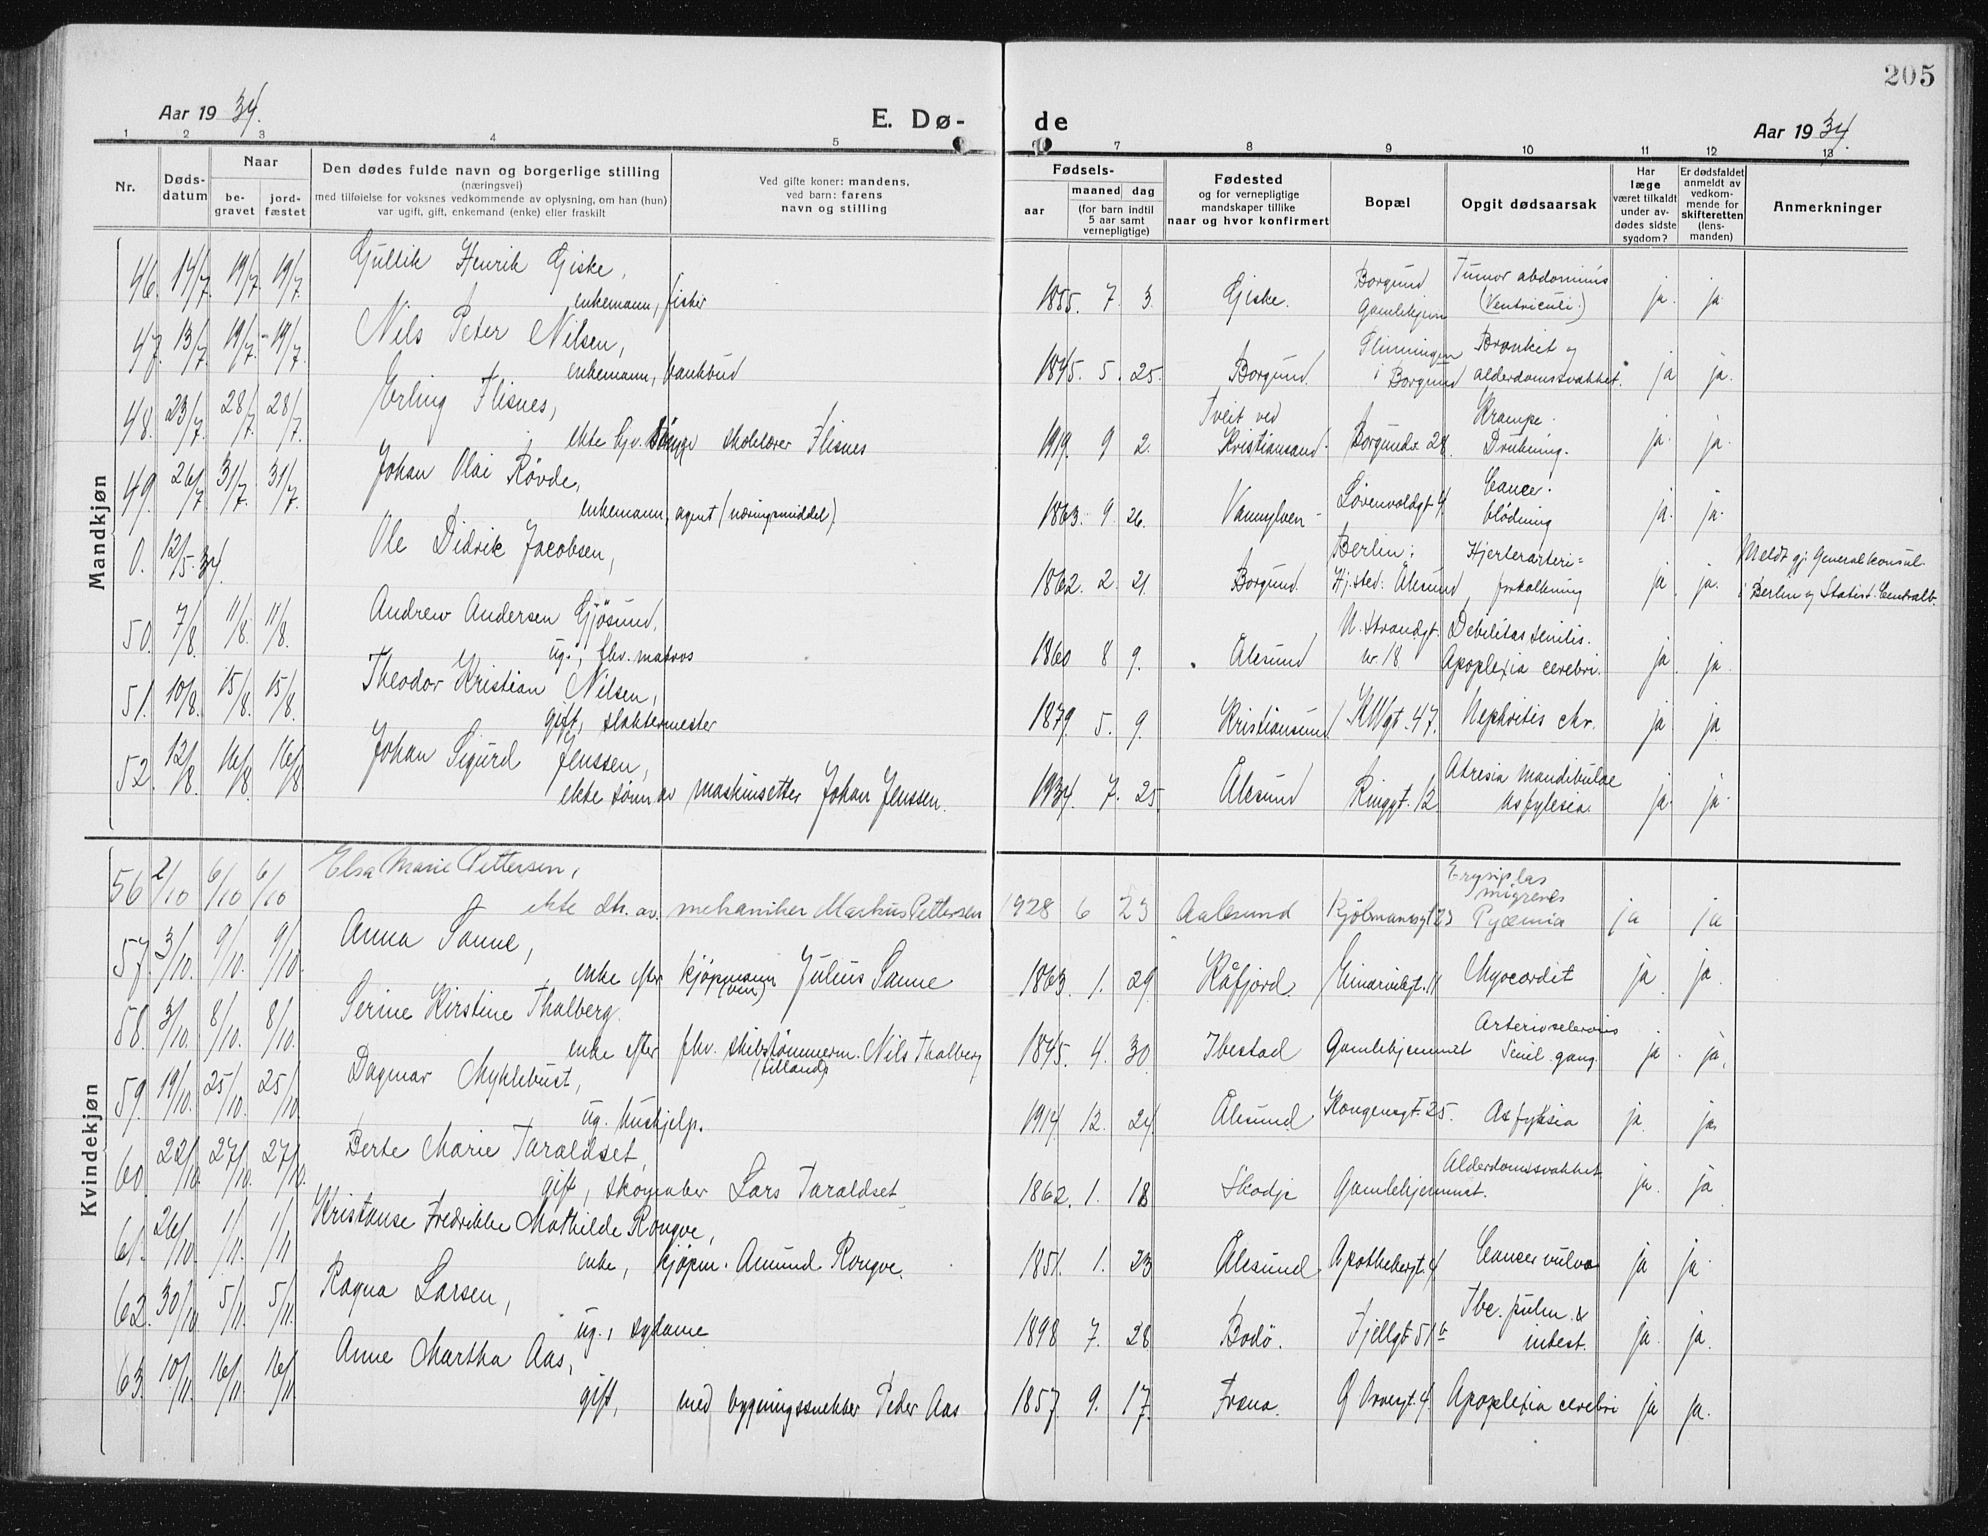 205
Aar 1934.
E. Dø-
de
Aar 1934.
1 2 3 4 5 7 8 9 10 11 12 13
Nr.
Døds-
datum
Naar
be-
gravet
jord-
fæstet
Den dødes fulde navn og borgerlige stilling
(næringsvei)
med tilføielse for voksnes vedkommende av oplysning, om han (hun)
var ugift, gift, enkemand (enke) eller fraskilt
Ved gifte koner: mandens,
ved barn: farens
navn og stilling
Fødsels-
aar
maaned dag
(for barn indtil
5 aar samt
vernepligtige)
Fødested
og for vernepligtige
mandskaper tillike
naar og hvor konfirmert
Bopæl
Opgit dødsaarsak
Har
læge
været tilkaldt
under av-
dødes sidste
sygdom?
Er dødsfaldet
anmeldt av
vedkom-
mende for
skifteretten
(lens-
manden)
Anmerkninger
Mandkjøn
46. 14/7. 19/7. 19/7. Gullik Henrik Giske,
enkemann, fisker
1855. 7. 3. Giske. Borgund Gamlehjem Tumor abdominis (Ventriculi.) ja. ja.
47. 13/7. 19/7. 19/7. Nils Peter Nilsen,
enkemann, bankbud
1845. 5. 25. Borgund. i Borgund Bronkit og alderdomssvakhet. ja ja.
48. 23/7. 28/7. 28/7. Erling Flisnes,
ekte skolelærer Flisnes
1919. 9 2. Tveit ved Kristiansand. Borgundv. 28. Krampe. Drukning. ja. ja.
49. 26/7. 31/7. 31/7. Johan Olai Røvde,
enkemann, agent (næringsmiddel)
1863. 9. 26. Vannylven Løvenvoldgt. 4. Cancer. blødning ja. ja.
0. 12/5-34. Ole Didrik Jacobsen,
1862. 2. 21. Borgund. Berlin: Hj.sted: Ålesund Hjerterarteri= forkalkning ja ja. Meldt gj. Generalkonsul. i Berlin og Statist. Centralb.
50. 7/8. 11/8. 11/8. Andrew Andersen Gjøsund,
ug., fhv. matros
1860 8 9. Ålesund N. Strandgt. nr. 18 Debilitas senilis. Apoplexia cerebri. ja. ja.
51. 10/8. 15/8. 15/8. Theodor Kristian Nilsen,
gift, slaktermester
1879. 5. 9. Kristiansund 47. Nephritis chr. ja ja
52. 12/8. 16/8. 16/8. Johan Sigurd Jenssen,
ekte sønn av maskinsetter Johan Jenssen.
1934. 7. 25. Ålesund Ringgt. 12 Atresia mandibulae Asfyksia. ja. ja.
Kvindekjøn
56 2/10 6/10 6/10 Elsa Marie Pettersen,
ekte dtr. av. mekaniker Markus Pettersen
1928 6 23 Aalesund Kjølmannsgt 23 Erysipelas migrens Pyæmia ja ja
57. 3/10. 9/10. 9/10. Anna Sanne,
enke efter kjøpmann Julius Sanne
1863. 1. 29. Kåfjord. Einarvikgt. 11 Myocardit ja. ja.
58. 3/10. 8/10. 8/10. Serine Kirstine Thalberg.
enke efter fhv. skibstømmerm. Nils Thalberg
1845. 4. 30. Ibestad Gamlehjemmet Arteriosclerosis Senil. gang. ja. ja.
59. 19/10. 25/10. 25/10. Dagmar Myklebust,
ug. hushjelp.
1914. 12. 24. Ålesund Kongensgt. 25. Asfyksia ja. ja.
60. 22/10. 27/10. 27/10. Berte Marie Taraldset,
gift, skomaker Lars Taraldset
1862. 1. 18 Skodje Gamlehjemmet. Alderdomssvakhet ja. ja
61. 26/10. 1/11. 1/11 Kristanse Fredrikke Mathilde Rongve,
enke, kjøpm. Amund Rongve.
1851. 1. 23 Ålesund Apothekergt. 4 Cancer vulva ja ja.
62. 30/10. 5/11. 5/11. Ragna Larsen,
ug., sydame
1898 7. 28 Bodø. Fjellgt. 51b Tbc. pulm. & intest. ja. ja.
63. 10/11. 16/11. 16/11. Anne Martha Aas,
gift, med bygningssnekker Peder Aas
1857. 9. 17. Frøna. 4. Apoplexia cerebri ja ja.